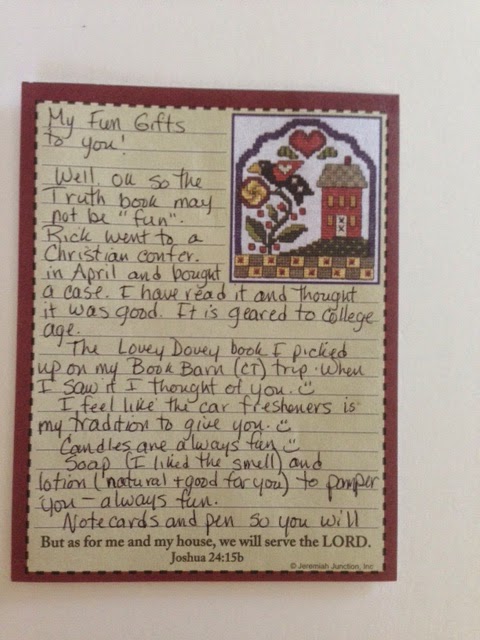 My Fun Gifts
to you!
Well, ok so the
Truth book may
not be "fun".
Rick went to a
Christian confer.
in April and bought
a case. I have read it and thought
it was good. It is geared to college
age.
The Lovey Dovey book I picked
up on my Book Barn (CT) trip. When
I saw it I thought of you. ☺
I feel like the car fresheners is
my tradition to give you. ☺
Candles are always fun ☺
Soap (I liked the smell) and
lotion (natural + good for you) to pamper
you - always fun.
Notecards and pen so you will
But as for me and my house, we will serve the LORD.
Joshua 24:15b
© Jeremiah Junction, Inc